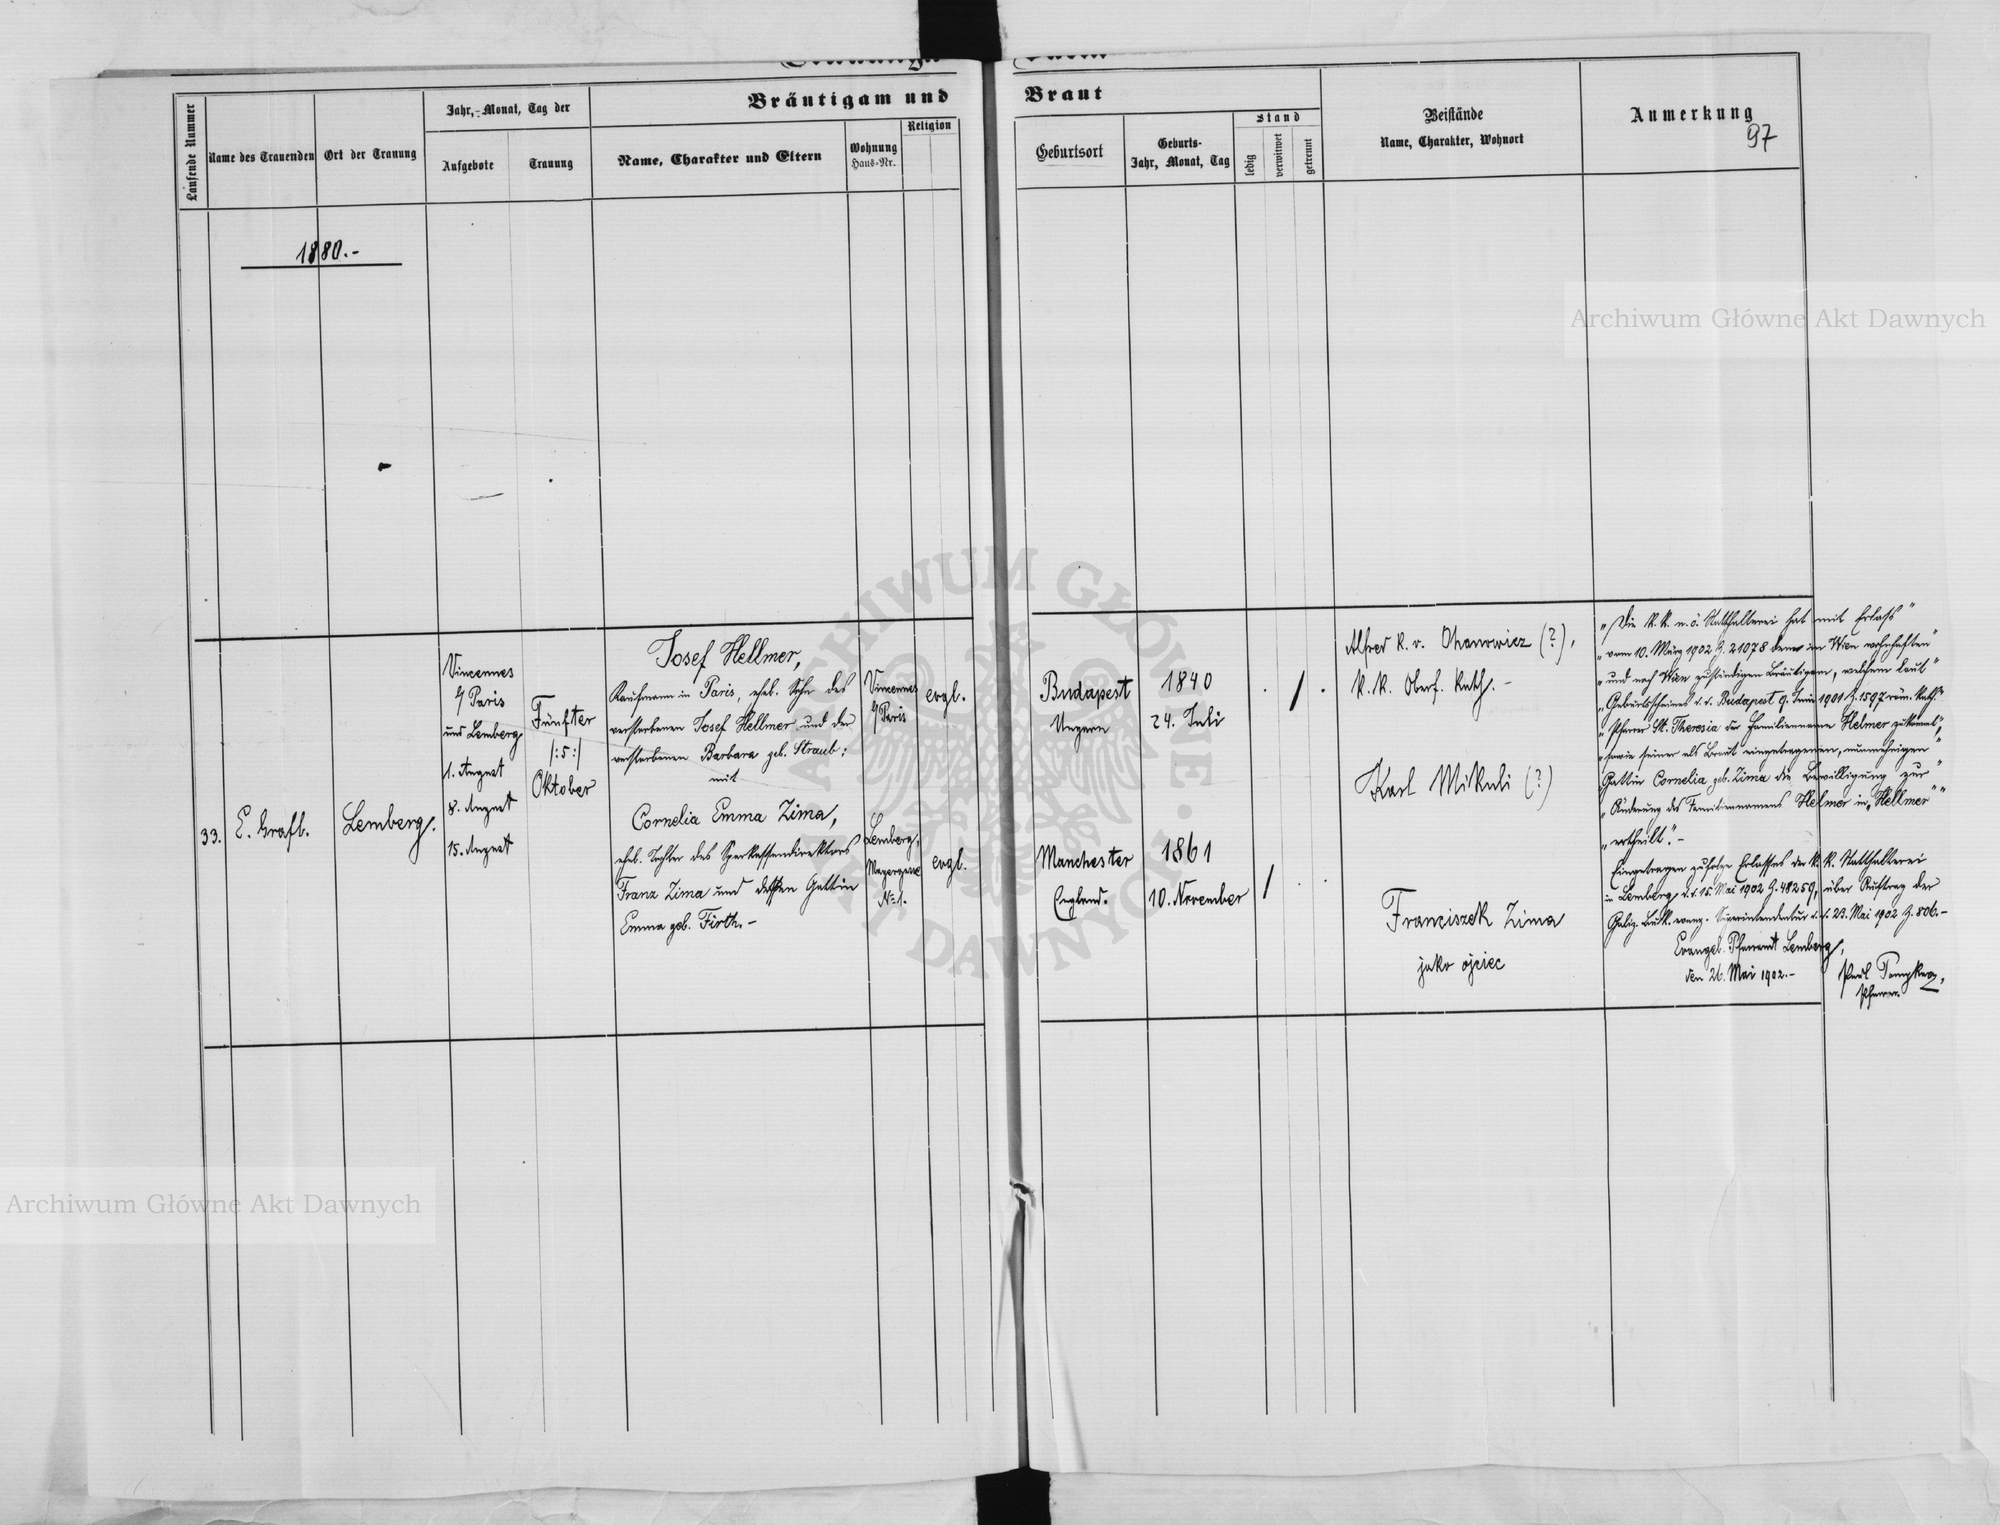 Bräutigam und Braut
97
Laufende Nummer
Name des Trauenden
Ort der Trauung
Jahr, Monat, Tag der
Aufgebote
Trauung
Name, Charakter und Eltern
Wohnung
Haus-Nr.
Religion
Geburtsort
Geburts-
Jahr, Monat, Tag
Stand
ledig
verwitwet
getrennt
Beistände
Name, Charakter, Wohnort
Anmerkung
1880.-
33.
E. Grafl.
Lemberg.
Vincennes
b/ Paris
und Lemberg
1. August
8. August
15. August
Fünfter
/:5:/
Oktober
Josef Hellmer,
Kaufmann in Paris, ehel. Sohn des
verstorbenen Josef Hellmer und der
verstorbenen Barbara geb. Straub;
mit
Cornelia Emma Zima,
ehel. Tochter des Sparkassendirektors
Franz Zima und dessen Gattin
Emma geb. Firth.-
Vincennes
b/ Paris
Lemberg,
No 1.
evgl.
evgl.
Budapest
Ungarn
Manchester
England.
1840
24. Juli
1861
10. November
Alfred R. v. Ohanowicz (?),
k.k. Oberf. Rath.-
Karl Mikuli (?)
Franciszek Zima
jako ojciec
"Die k.k. n.ö. Statthalterei hat mit Erlass"
"vom 10. März 1902 Z. 21078 dem in Wien wohnhaften"
"und nach Wien zuständigen Bräutigam, welchem laut"
"Geburtsscheines d.d. Budapest 9. Juni 1901 Z. 1597 röm. kath."
"Pfarre St. Theresia der Familienname Helmer zukommt,"
"sowie seiner als Braut eingetragenen, nunmehrigen"
"Gattin Cornelia geb. Zima die Bewilligung zur"
"Änderung des Familiennamens Helmer in „Hellmer""
"ertheilt".-
Eingetragen zufolge Erlasses der k.k. Statthalterei
in Lemberg d.d. 15. Mai 1902 Z. 48259, über Auftrag der
Galiz. Buk. evang. Superintendentur d.d. 23. Mai 1902 Z. 806.-
Evangel. Pfarramt Lemberg,
den 26. Mai 1902.-
Pfarrer.
Archiwum Główne Akt Dawnych
Archiwum Główne Akt Dawnych
ARCHIWUM GŁÓWNE AKT DAWNYCH